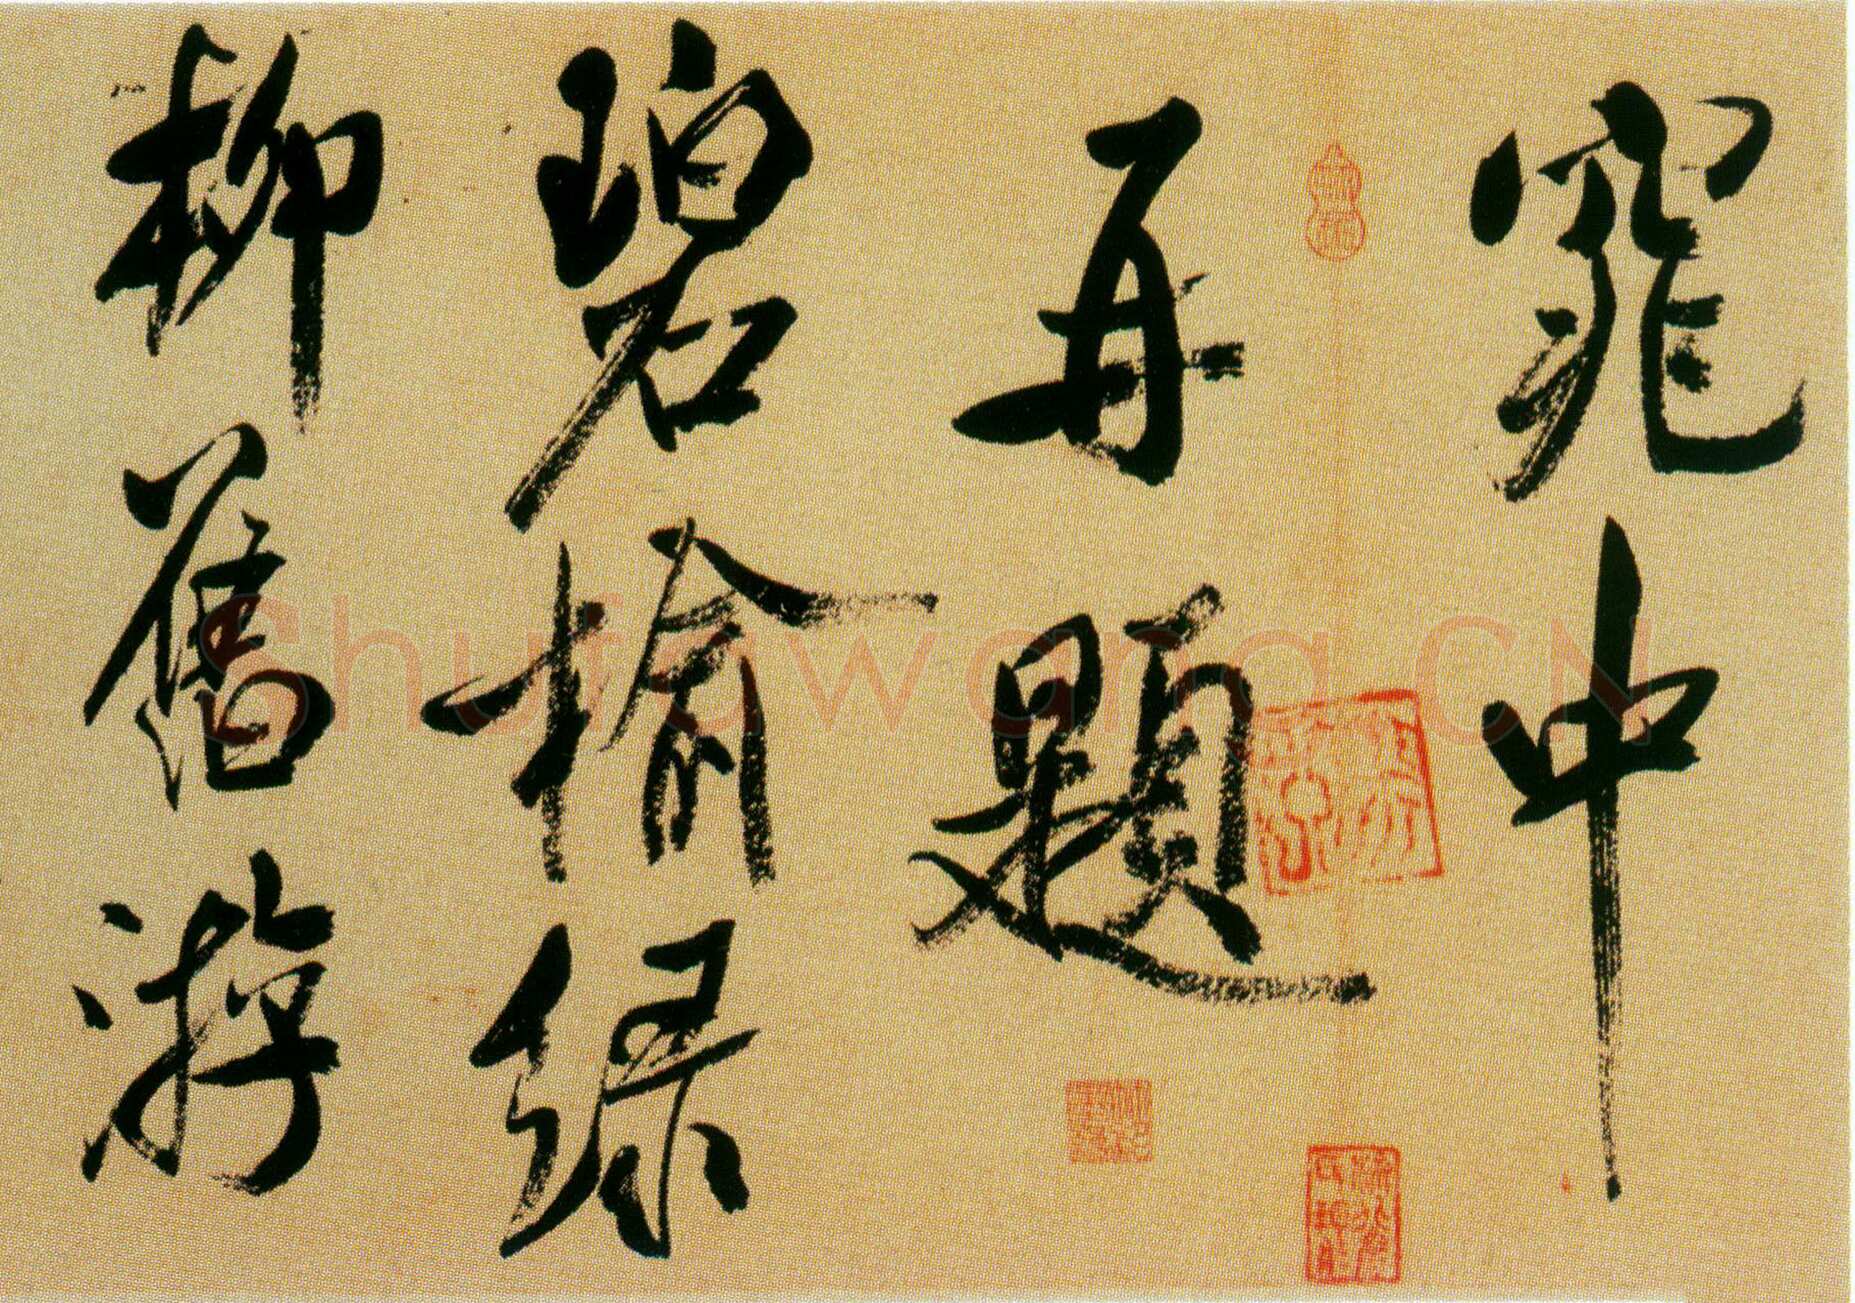 窕中
再題
碧榆綠
柳舊游
Shufawang.CN